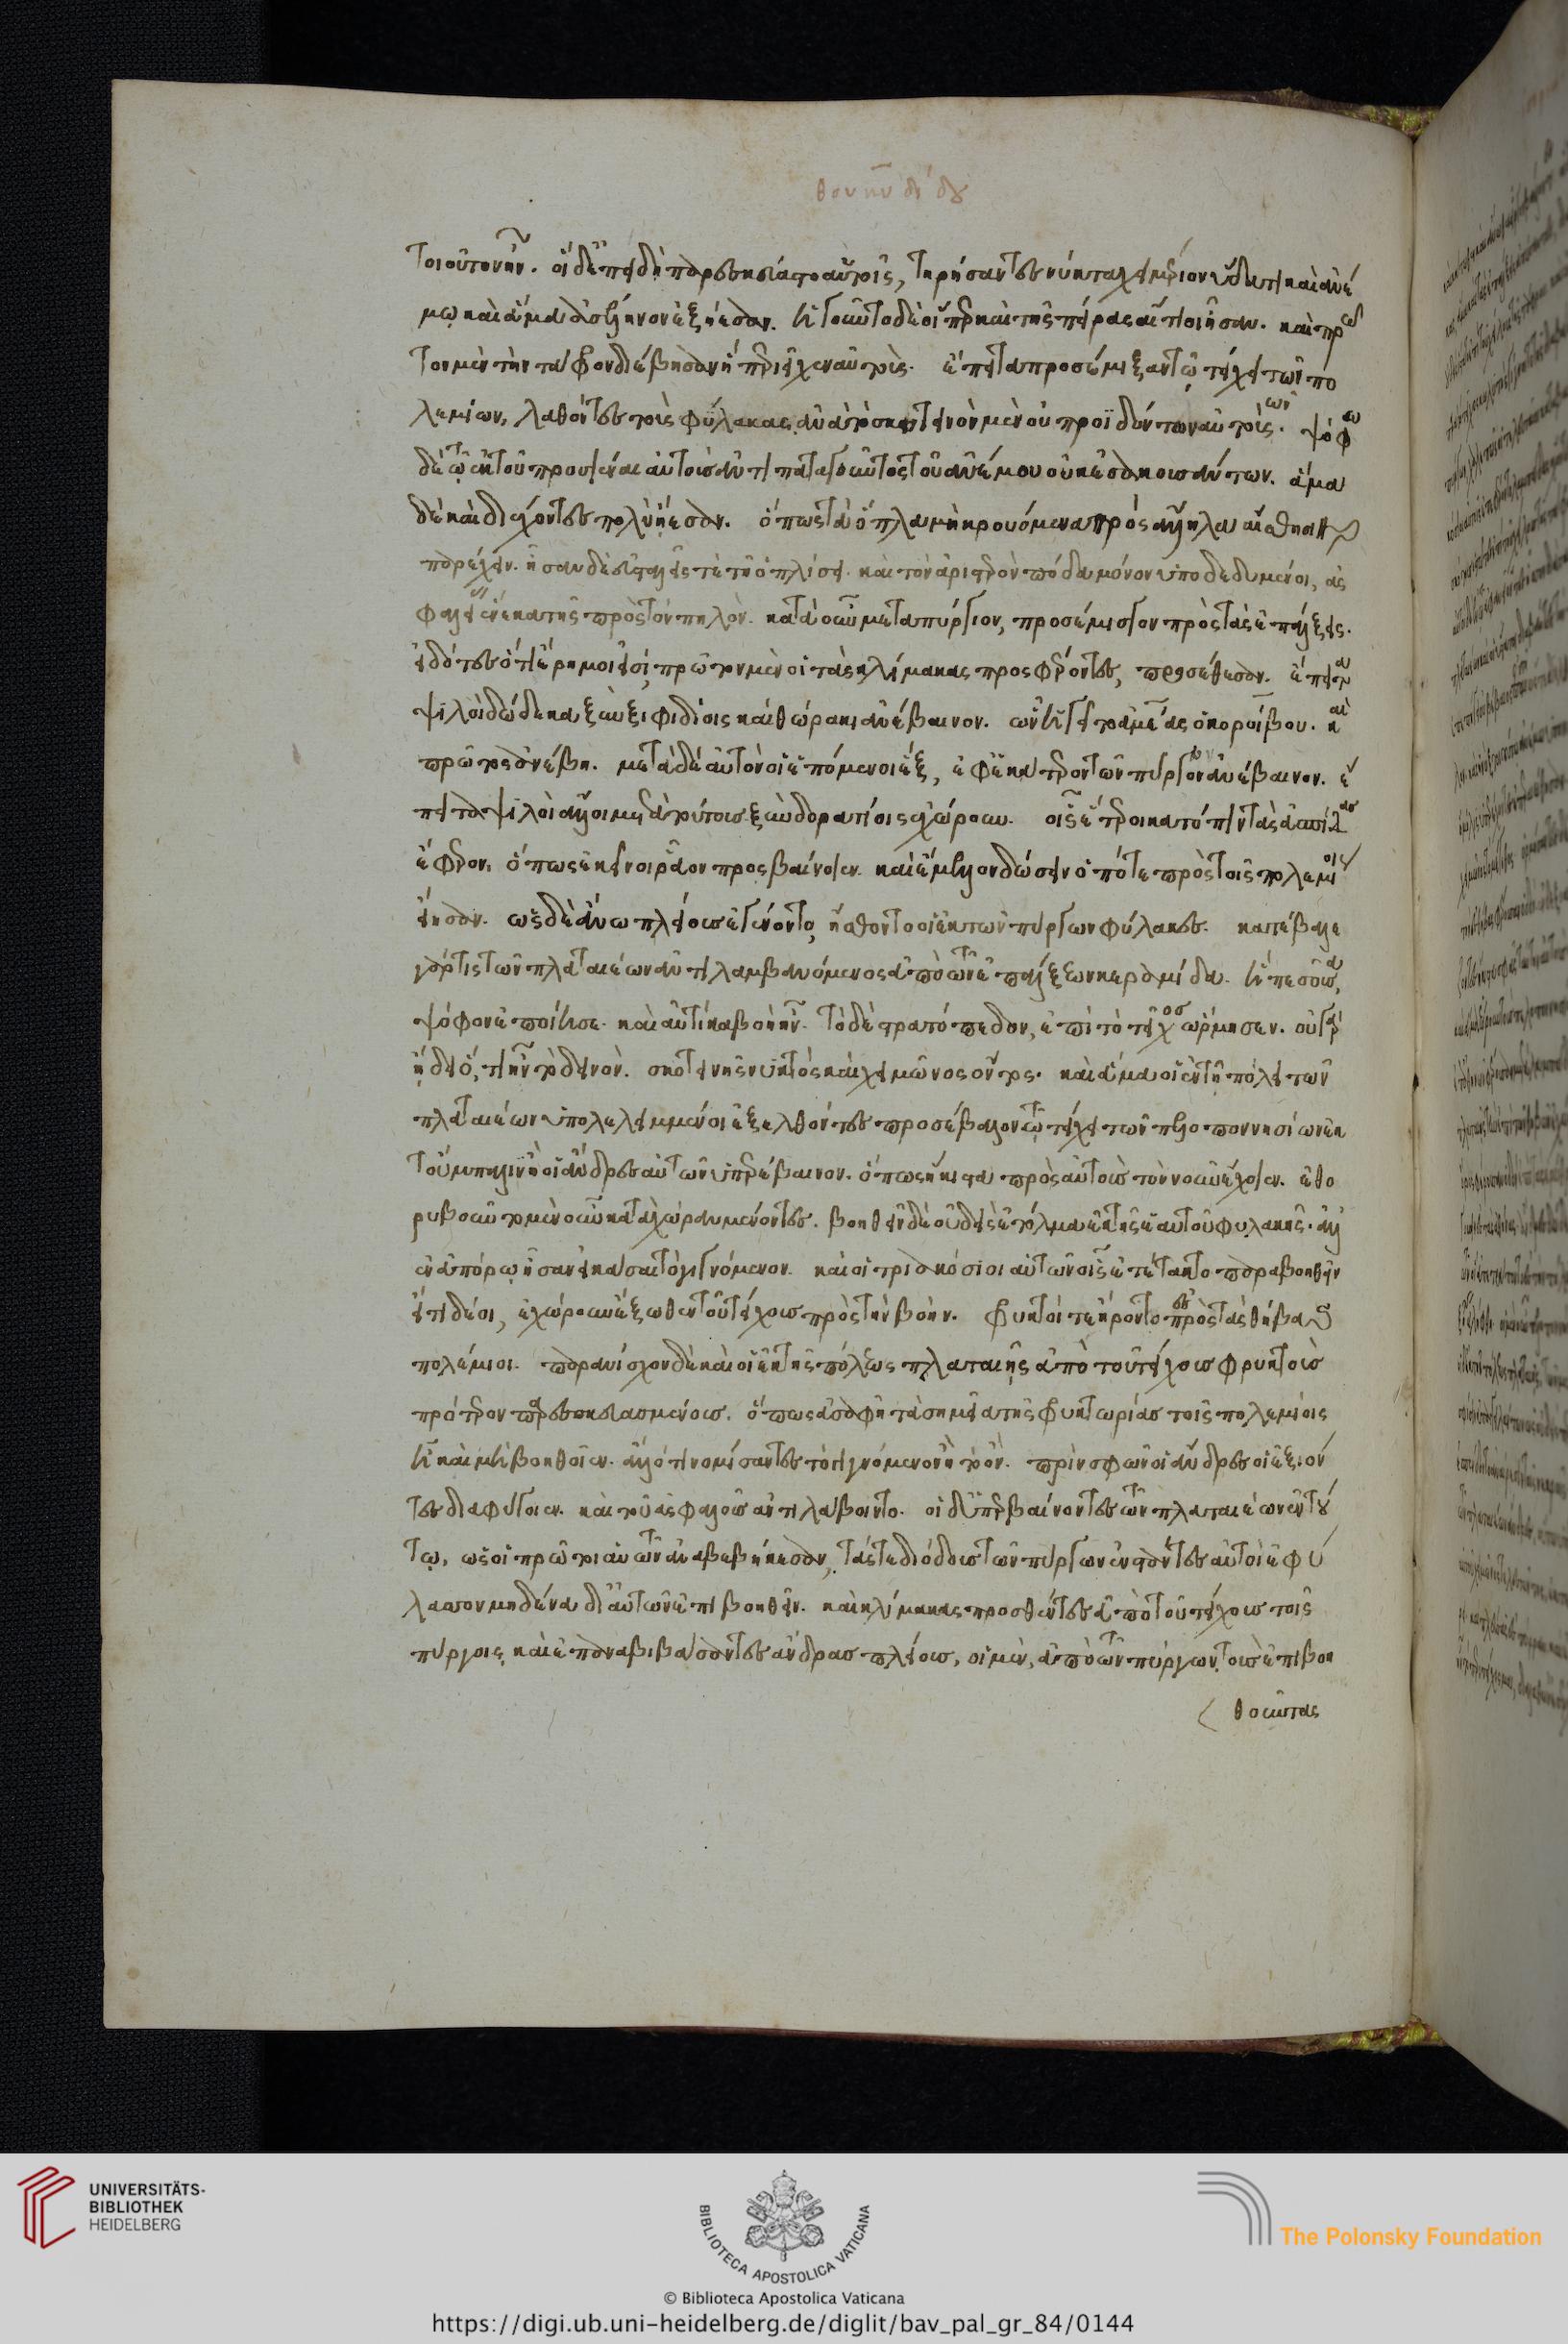 τοιοῦτον ἦν. οἱ δ' ἐπειδὴ παρεσκεύαστο αὐτοῖς, τηρήσαντες νύκτα χειμέριον ὕδατι καὶ ἀνέ
μῳ καὶ ἅμα ἀσέληνον ἐξῄεσαν. ἡγοῦντο δὲ οἵπερ καὶ τῆς πείρας αἴτιοι ἦσαν. καὶ πρῶ
τον μὲν τὴν τάφρον διέβησαν ἣ περιεῖχεν αὐτοὺς. ἔπειτα προσέμιξαν τῷ τείχει τῶν πο
λεμίων, λαθόντες τοὺς φύλακας, ἀνὰ τὸ σκοτεινὸν μὲν οὐ προϊδόντων αὐτοὺς. ψόφῳ
δὲ τῷ ἐκ τοῦ προσιέναι αὐτοὺς ἀντιπαταγοῦντος τοῦ ἀνέμου οὐκ ἐσακουσάντων. ἅμα
δὲ καὶ διέχοντες πολὺ ᾔεσαν. ὅπως τὰ ὅπλα μὴ κρουόμενα πρὸς ἄλληλα αἴσθησιν
παρέχειν. ἦσαν δὲ εὐσταλεῖς τε τῇ ὁπλίσει. καὶ τὸν ἀριστερὸν πόδα μόνον ὑποδεδυμένοι, ἀσ
φαλείας ἕνεκα τῆς πρὸς τὸν πηλὸν. κατὰ οὖν μεταπύργιον, προσέμισγον πρὸς τὰς ἐπάλξεις.
εἰδότες ὅτι ἔρημοι εἰσί, πρῶτον μὲν οἱ τὰς κλίμακας προσφέροντες, προσέθεσαν. ἔπειτα
ψιλοὶ δώδεκα ξὺν ξιφιδίοις καὶ θώρακι ἀνέβαινον. ὧν ἡγεῖτο ἀμμέας ὁ κοροίβου. καὶ
πρῶτος ἀνέβη. μετὰ δὲ αὐτὸν οἱ ἑπόμενοι ἓξ, ἐφ' ἑκάτερον τῶν πύργων ἀνέβαινον. ἔ
πειτα ψιλοὶ ἄλλοι μετὰ τούτους ξὺν δορατίοις ἐχώρουν. οἷς ἕτεροι κατόπιν τὰς ἀσπίδας
ἔφερον. ὅπως ἐκεῖνοι ῥᾷον προσβαίνοιεν. καὶ ἔμελλον δώσειν ὁπότε πρὸς τοῖς πολεμίοις
εἴησαν. ὡς δὲ ἄνω πλείους ἐγένοντο, ᾔσθοντο οἱ ἐκ τῶν πύργων φύλακες. κατέβαλε
γάρ τις τῶν πλαταιέων ἀντιλαμβανόμενος ἀπὸ τῶν ἐπάλξεων κεραμίδα. ἣ πεσοῦσα,
ψόφον ἐποίησε. καὶ αὐτίκα βοὴ ἦν. τὸ δὲ στρατόπεδον, ἐπὶ τὸ τεῖχος ὥρμησεν. οὐ γὰρ
ᾔδει ὅ, τι ἦν τὸ δεινὸν. σκοτεινῆς νυκτὸς καὶ χειμῶνος ὄντος. καὶ ἅμα οἱ ἐν τῇ πόλει τῶν
πλαταιέων ὑπολελειμμένοι ἐξελθόντες προσέβαλον τῷ τείχει τῶν πελοποννησίων ἐκ
τοὔμπαλιν ἢ οἱ ἄνδρες αὐτῶν ὑπερέβαινον. ὅπως ἥκιστα πρὸς αὐτοὺς τὸν νοῦν ἔχοιεν. ἐθο
ρυβοῦντο μὲν οὖν κατὰ χώραν μένοντες. βοηθεῖν δὲ οὐδεὶς ἐτόλμα ἐκ τῆς ἑαυτοῦ φυλακῆς. ἀλλ'
ἐν ἀπόρῳ ἦσαν εἰκάσαι τὸ γιγνόμενον. καὶ οἱ τριακόσιοι αὐτῶν οἷς ἐτέτακτο παραβοηθεῖν
εἴ τι δέοι, ἐχώρουν ἔξωθεν τοῦ τείχους πρὸς τὴν βοὴν. φρυκτοί τε ᾔροντο πρὸς τὰς θήβας
πολέμιοι. παρανίσχον δὲ καὶ οἱ ἐκ τῆς πόλεως πλαταιῆς ἀπὸ τοῦ τείχους φρυκτοὺς
πρότερον παρεσκευασμένους. ὅπως ἀσαφῆ τὰ σημεῖα τῆς φρυκτωρίας τοῖς πολεμίοις
ᾖ καὶ μὴ βοηθοῖεν. ἄλλό τι νομίσαντες τὸ γιγνόμενον ἢ τὸ ὂν. πρὶν σφῶν οἱ ἄνδρες οἱ ἐξιόν
τες διαφύγοιεν. καὶ τοῦ ἀσφαλοῦς ἀντιλάβοιντο. οἱ δ' ὑπερβαίνοντες τῶν πλαταιέων ἐν τού
τῳ, ὡς οἱ πρῶτοι αὐτῶν ἀναβεβήκεσαν, τάς τε διόδους τῶν πύργων ἐνστάντες αὐτοὶ ἐφύ
λασσον μηδένα δι' αὐτῶν ἐπιβοηθεῖν. καὶ κλίμακας προσθέντες ἀπὸ τοῦ τείχους τοῖς
πύργοις, καὶ ἐπαναβιβάσαντες ἄνδρας πλείους, οἱ μὲν, ἀπὸ τῶν πύργων τοὺς ἐπιβοη
θοῦντας
UNIVERSITÄTS-
BIBLIOTHEK
HEIDELBERG
BIBLIOTECA APOSTOLICA VATICANA
The Polonsky Foundation
© Biblioteca Apostolica Vaticana
https://digi.ub.uni-heidelberg.de/diglit/bav_pal_gr_84/0144